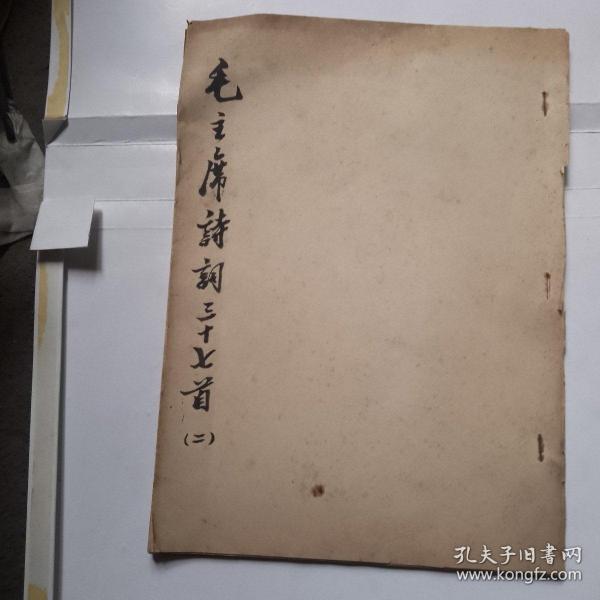 毛主席詩詞三十七首
(二)
孔夫子旧書网
www.kongfz.com